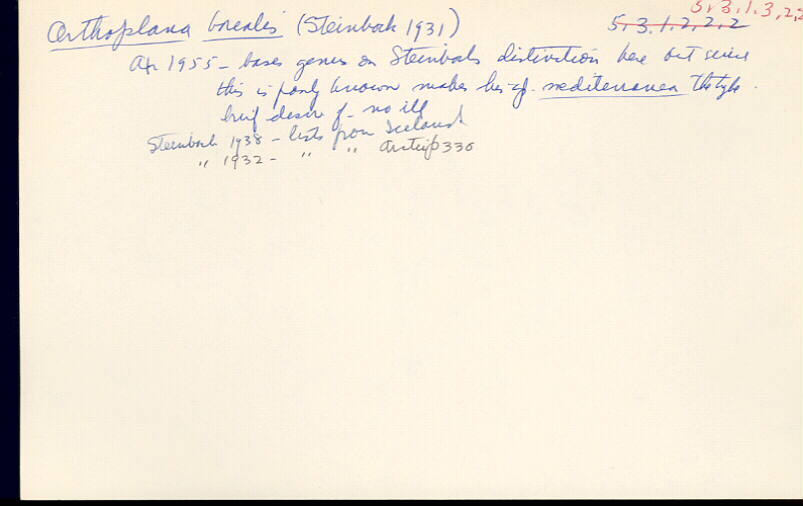 5,3,1,3,2,2
Orthoplana borealis (Steinbock 1931) 5,3,1,2,2,2
Ax 1955 - bases genus on Steinbocks distinction here but since
this is poorly known makes his sp. mediterranea the type.
brief descr of - no ill
Steinbock 1938 - lists from Iceland
" 1932 - " " Arctic p 330